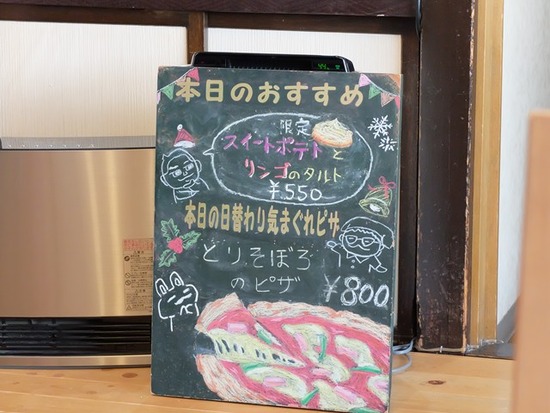 本日のおすすめ
限定
スイートポテトと
リンゴのタルト
¥550
本日の日替わり気まぐれピザ
とりそぼろ
のピザ
¥800